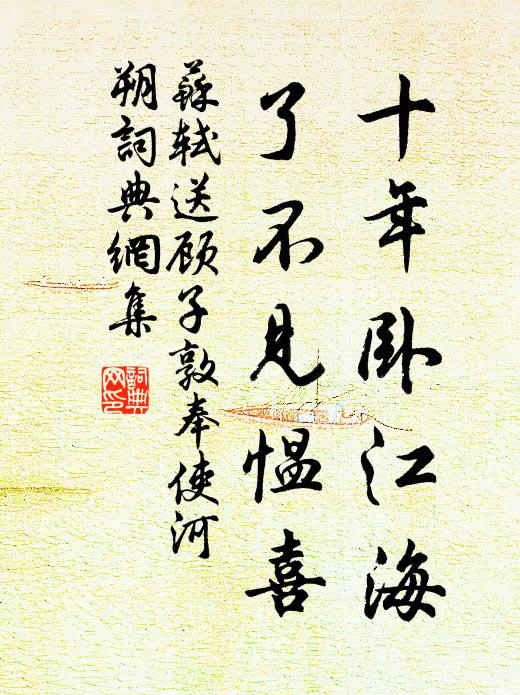 十年卧江海
了不見愠喜
蘇軾送顾子敦奉使河
朔詞典網集
詞典
网印